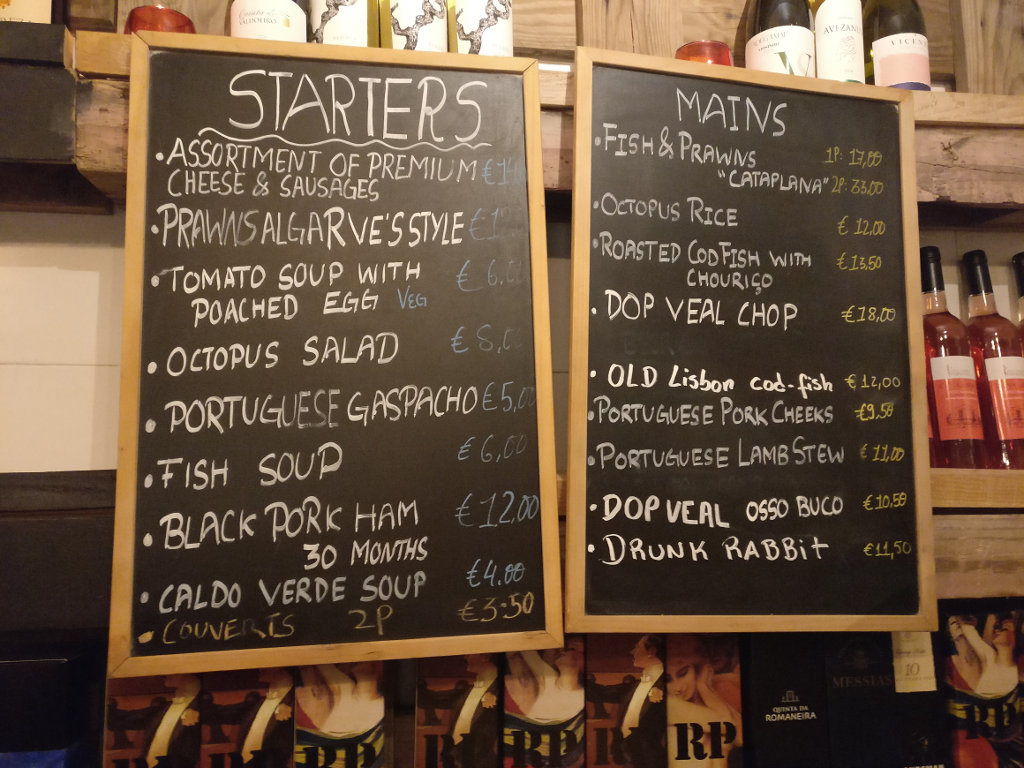 VALDOURO
AVEZANO
VICENT
STARTERS
• ASSORTMENT OF PREMIUM
CHEESE & SAUSAGES
• PRAWNS ALGARVE'S STYLE
• TOMATO SOUP WITH € 6.00
POACHED EGG VEG
• OCTOPUS SALAD € 8,0
• PORTUGUESE GASPACHO € 5,00
• FISH SOUP € 6,00
• BLACK PORK HAM € 12,00
30 MONTHS
• CALDO VERDE SOUP € 4.00
• COUVERTS 2P € 3.50
MAINS
• FISH & PRAWNS 1P: 17,00
"CATAPLANA" 2P: 33,00
• OCTOPUS RICE € 12,00
• ROASTED CODFISH WITH € 13,50
CHOURIÇO
• DOP VEAL CHOP € 18,00
• OLD Lisbon cod-fish € 12,00
• PORTUGUESE PORK CHEEKS € 9.50
• PORTUGUESE LAMB STEW € 11,00
• DOP VEAL OSSO BUCO € 10.50
• DRUNK RABBiT € 11,50
RP
RP
RP
QUINTA DA
ROMANEIRA
MESSIAS
10